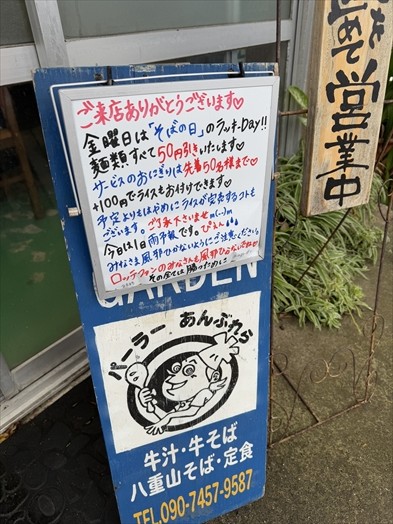 ご来店ありがとうございます♡
金曜日は「そばの日」のラッキーDay!!
麺類すべて50円引きいたします♡
サービスのおにぎりは先着50名様まで♡
+100円でライスもお付けできます♡
予定よりもはやめにライスが完売するコトも
ございます。ご了承下さいませm(--)m
今日は1日雨予報です。ぴえん
みなさま風邪ひかないようにご注意ください。
ロッテファンのみなさんも風邪ひかないでね♡
その全ては勝つために
GARDEN
パーラー あんぶれら
牛汁・牛そば
八重山そば・定食
TEL.090-7457-9587
を
めて
営業中